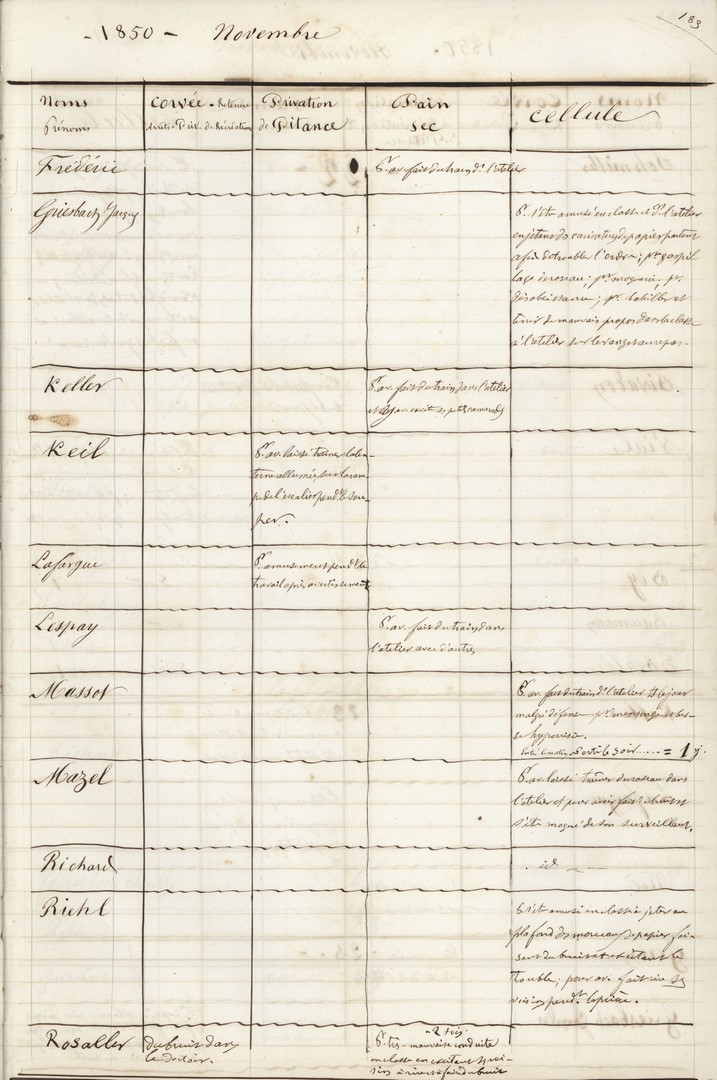 183
- 1850 - Novembre
Noms
Prénoms
Corvée - Retenue
Arrêts - Priv. de Récréation
Privation
de Pitance
Pain
sec
Cellule
Frédéric
Pr. av. fait du train ds. l'atelier
Griesbach Jacques
Pr. s'être amusé en classe et ds. l'atelier
en jetant des caricatures de papier partout
afin de troubler l'ordre; pr. gaspil
lage de roseau; pr. moquerie, pr.
désobéissance; pr. babiller et
tenir de mauvais propos dans la classe
à l'atelier sur les rangs et au repas.
Keller
Pr. av. fait du train dans l'atelier
et y av. excité ses petits camarades
Keil
Pr. av. laissé traîner la lan-
terne allumée sur la ram-
pe de l'escalier pendt. le sou-
per.
Lafargue
Pr. amusement pendt. le
travail après avertissement
Lespay
Pr. av. fait du train dans
l'atelier avec d'autres
Massot
Pr. av. fait du train ds. l'atelier tt. le jour
malgré défense pr. mensonge et bas-
se hypocrisie.
Entré le matin. Sorti le soir ...... = 1 j.
Mazel
Pr. av. laissé traîner du roseau dans
l'atelier et pour avoir fait du bruit et
s'être moqué de son surveillant.
Richard
id
Riehl
Pr. s'être amusé en classe à jeter au
plafond des morceaux de papier fai-
sant du bruit et excitant le
trouble; pour av. fait rire ses
voisins pendt. la prière.
Rosaller
du bruit dans
le dortoir.
- 2 fois.
Pr. très mauvaise conduite
en classe en excitant ses voi-
sins à rire et faire du bruit